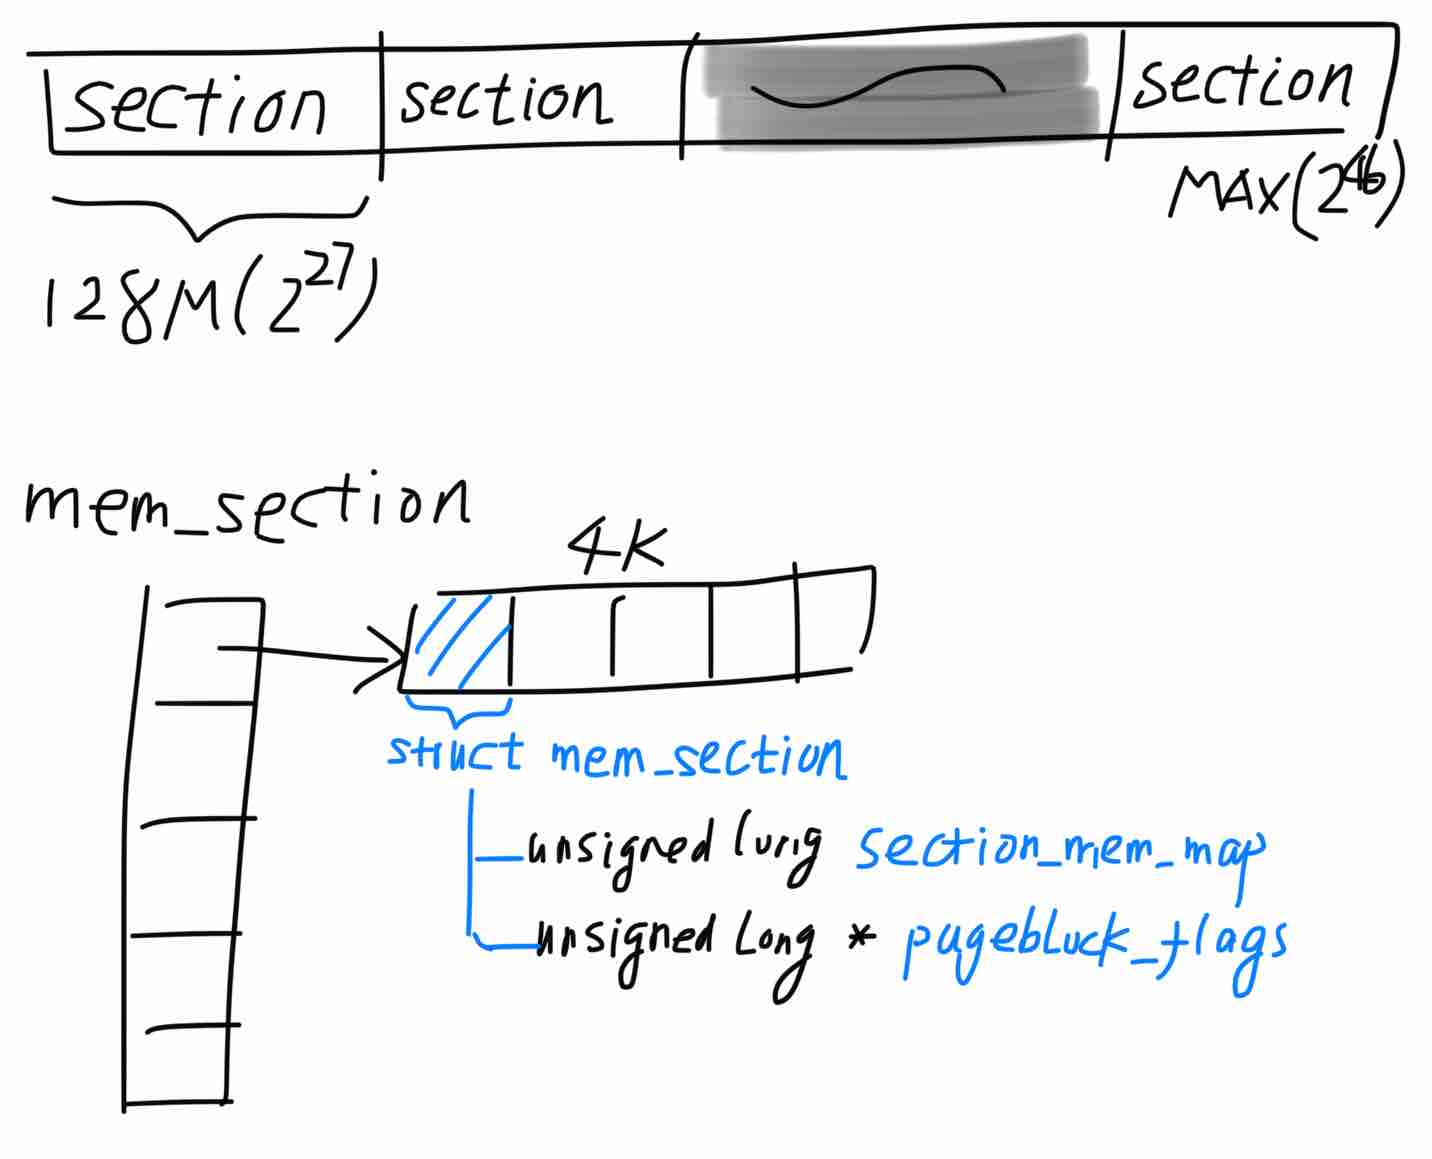 section section section
MAX(2^46)
128M(2^27)
mem_section
4K
struct mem_section
unsigned long section_mem_map
unsigned Long * pageblock_flags